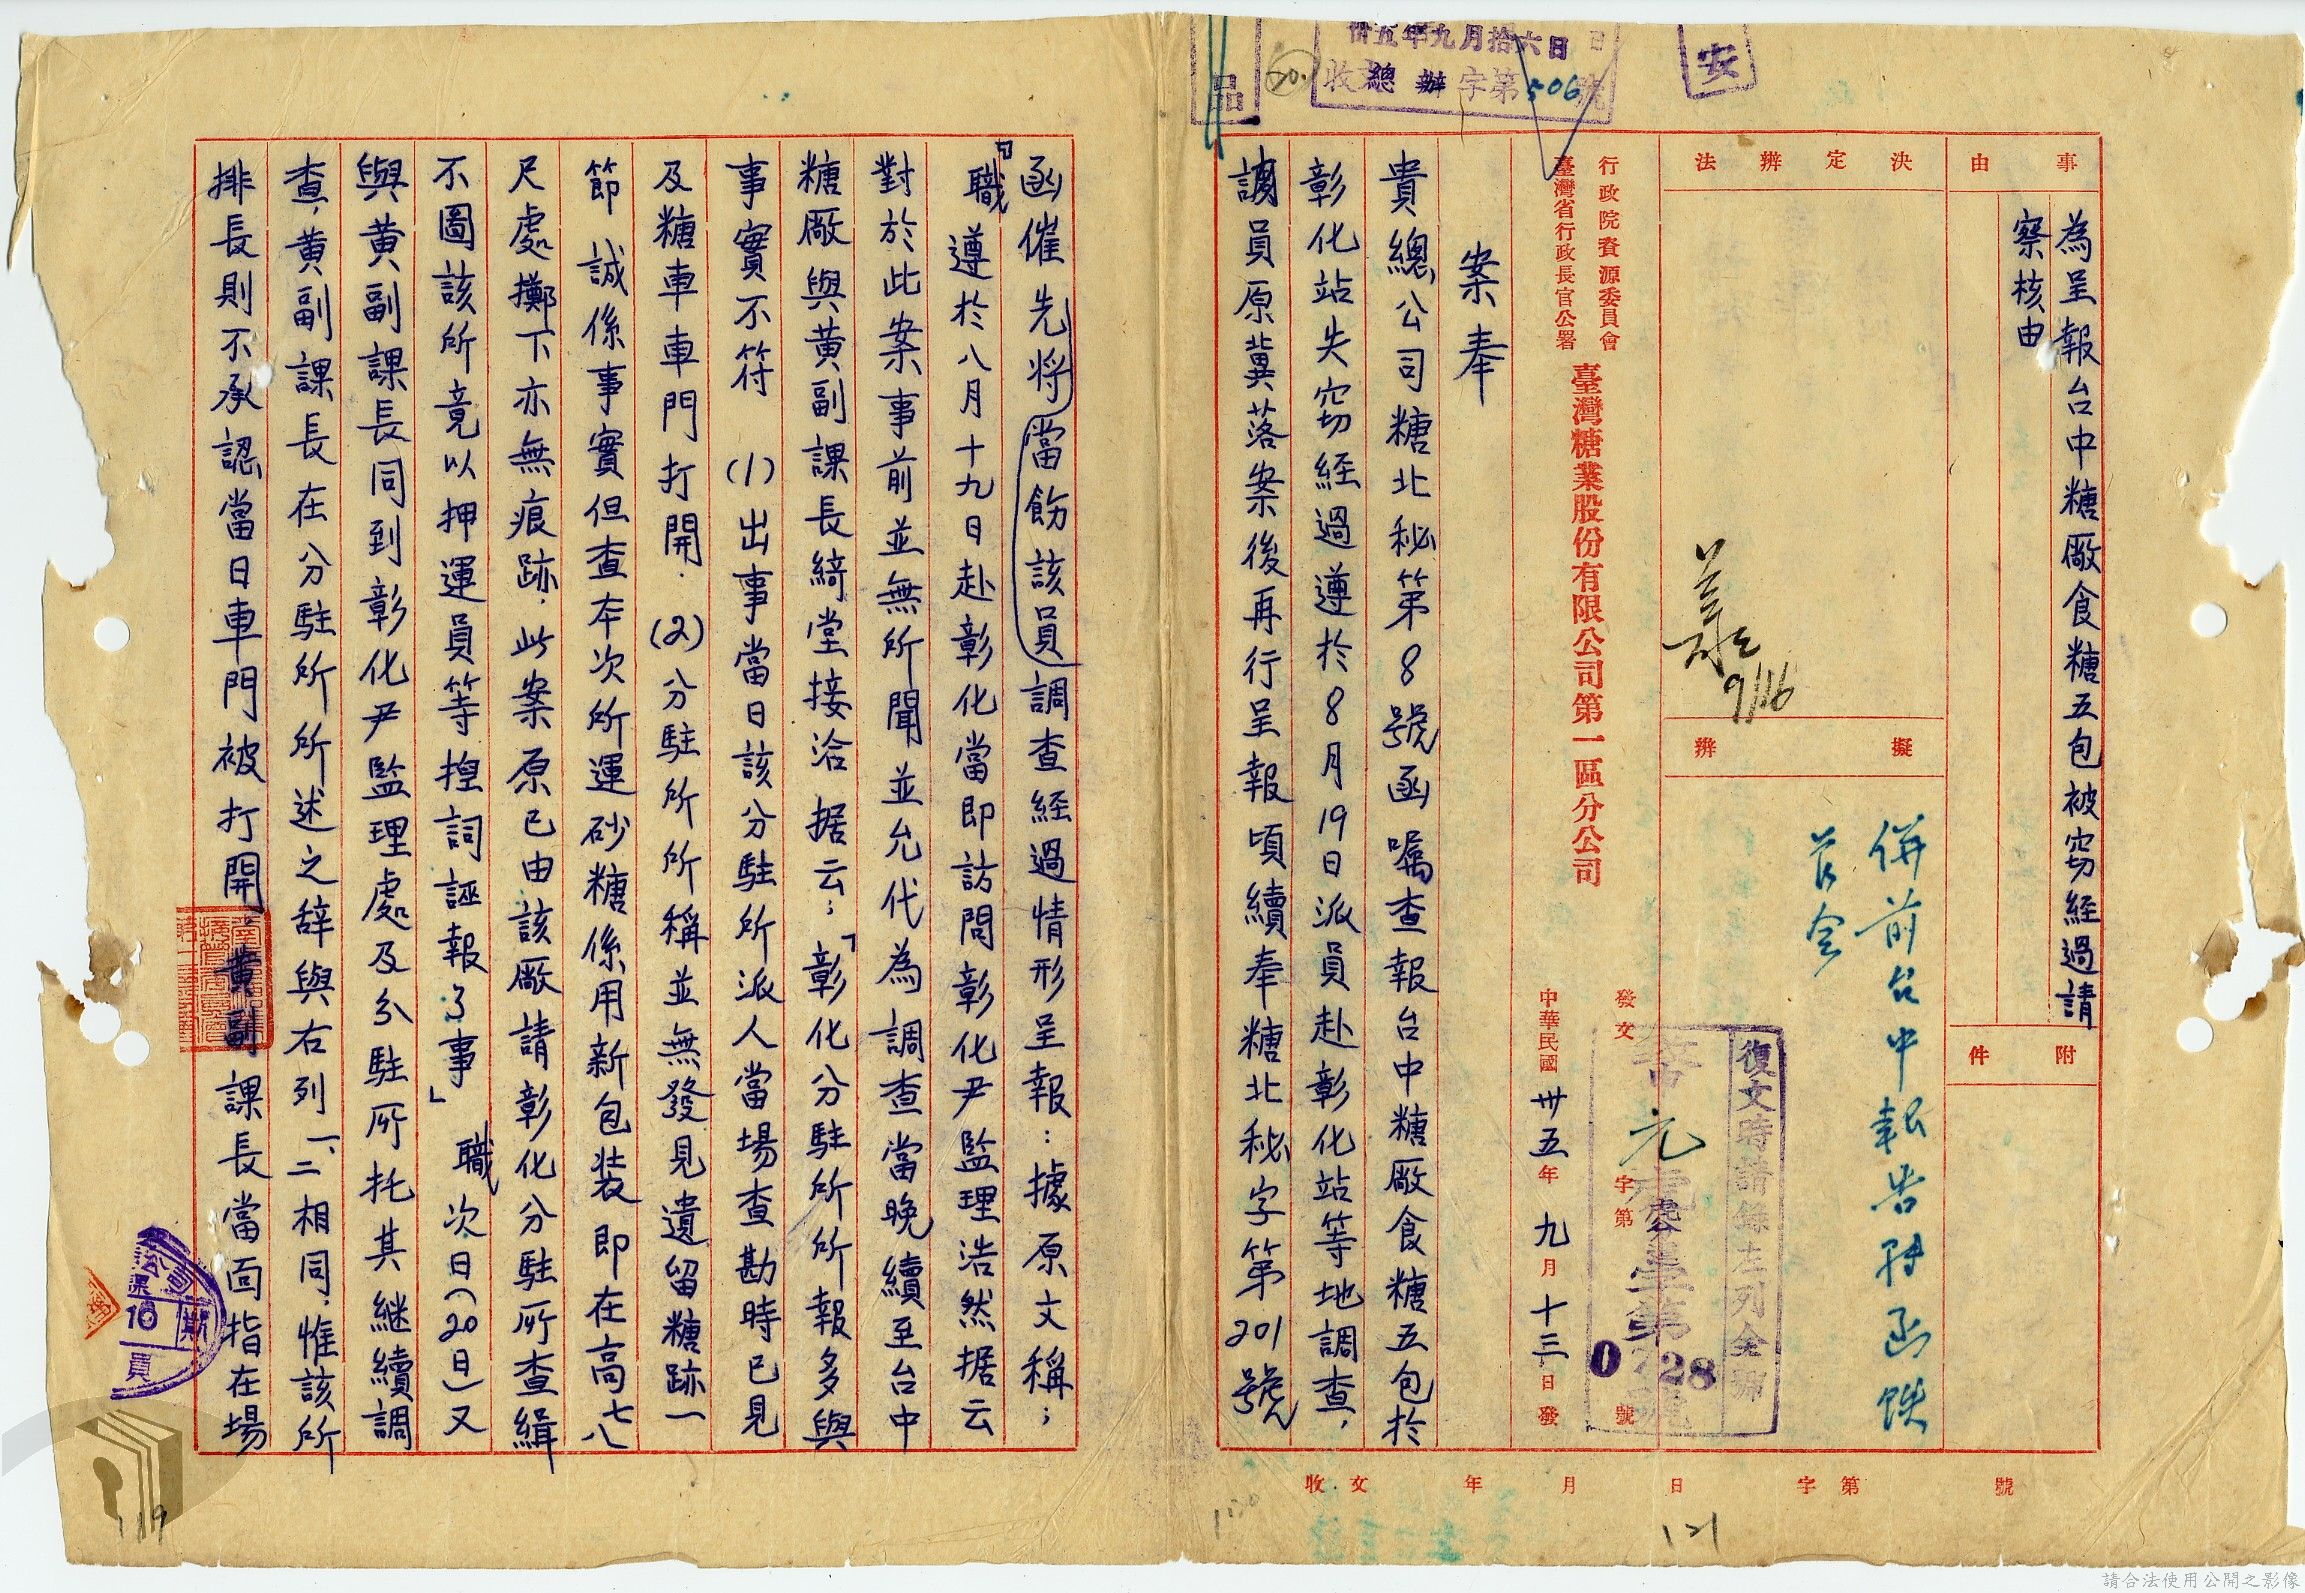 卅五年九月拾六日
收總辦字第506號
安
事由
為呈報台中糖廠食糖五包被窃経過請
察核由
附件
決定辦法
9/16
擬辦
併前台中報告
行政院資源委員會
臺灣省行政長官公署
臺灣糖業股份有限公司第一區分公司
發文 字第 號
復文時請錄左列全號
0728
中華民國卅五年九月十三日發
案奉
貴總公司糖北秘第8號函嘱查報台中糖廠食糖五包於
彰化站失窃経過遵於8月19日派員赴彰化站等地調查，
讀員原冀落案後再行呈報頃續奉糖北秘字第201號
收文 年 月 日 字第 號
121
函催先將當飭該員調查経過情形呈報：據原文稱；
「職遵於八月十九日赴彰化當即訪問彰化尹監理浩然据云
對於此案事前並無所聞並允代為調查當晚續至台中
糖廠與黄副課長綺堂接洽 据云；「彰化分駐所所報多與
事實不符 (1)出事當日該分駐所派人當場查勘時已見
及糖車車門打開．(2)分駐所所稱並無發見遺留糖跡一
節 誠係事實但查本次所運砂糖係用新包装即在高七八
尺處擲下亦無痕跡．此案原已由該廠請彰化分駐所查緝
不圖該所竟以押運員等揑詞誣報了事」 職次日(20日)又
與黄副課長同到彰化尹監理處及分駐所托其継續調
查，黄副課長在分駐所所述之辞與右列一、二相同，惟該所
排長則不承認當日車門被打開，黄副課長當面指在場
119
請合法使用公開之影像